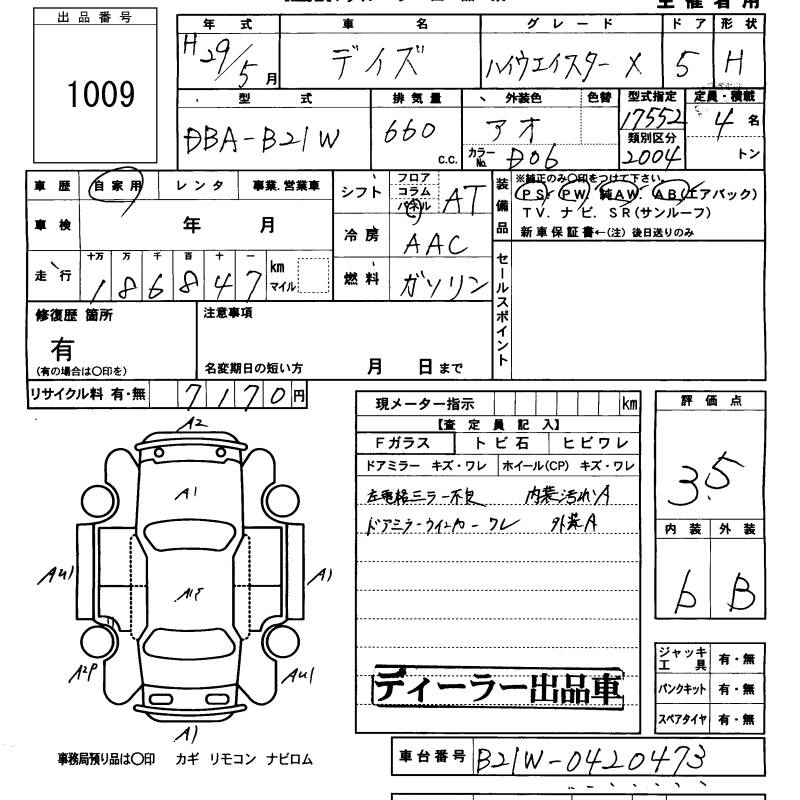 主催者用
出品番号
1009
年式 車名 グレード ドア 形状
H29/5月 デイズ ハイウェイスター X 5 H
型式 排気量 外装色 色替 型式指定 定員・積載
DBA-B21W 660 c.c. アオ 17552 4名
カラーNo. D06 類別区分 2004 トン
車歴 自家用 レンタ 事業.営業車
シフト フロア コラム パネル AT
装備品 ※純正のみ〇印をつけて下さい。
PS. PW. 純AW. AB(エアバック)
TV. ナビ. SR(サンルーフ)
新車保証書←(注) 後日送りのみ
車検 年 月
冷房 AAC
走行 十万 万 千 百 十 一
186847 km マイル
燃料 ガソリン
セールスポイント
修復歴 箇所
有
(有の場合は〇印を)
注意事項
名変期日の短い方 月 日まで
リサイクル料 有・無 7170円
現メーター指示 km
【査定員記入】
Fガラス トビ石 ヒビワレ
ドアミラー キズ・ワレ ホイール(CP) キズ・ワレ
左電格ミラー不良 内装汚れA
ドアミラーウインカーワレ 外装A
ディーラー出品車
評価点
3.5
内装 外装
b B
A2
A1
AU1
A1
A2P
AU1
A1
ジャッキ工具 有・無
パンクキット 有・無
スペアタイヤ 有・無
事務局預り品は〇印 カギ リモコン ナビロム
車台番号 B21W-0420473